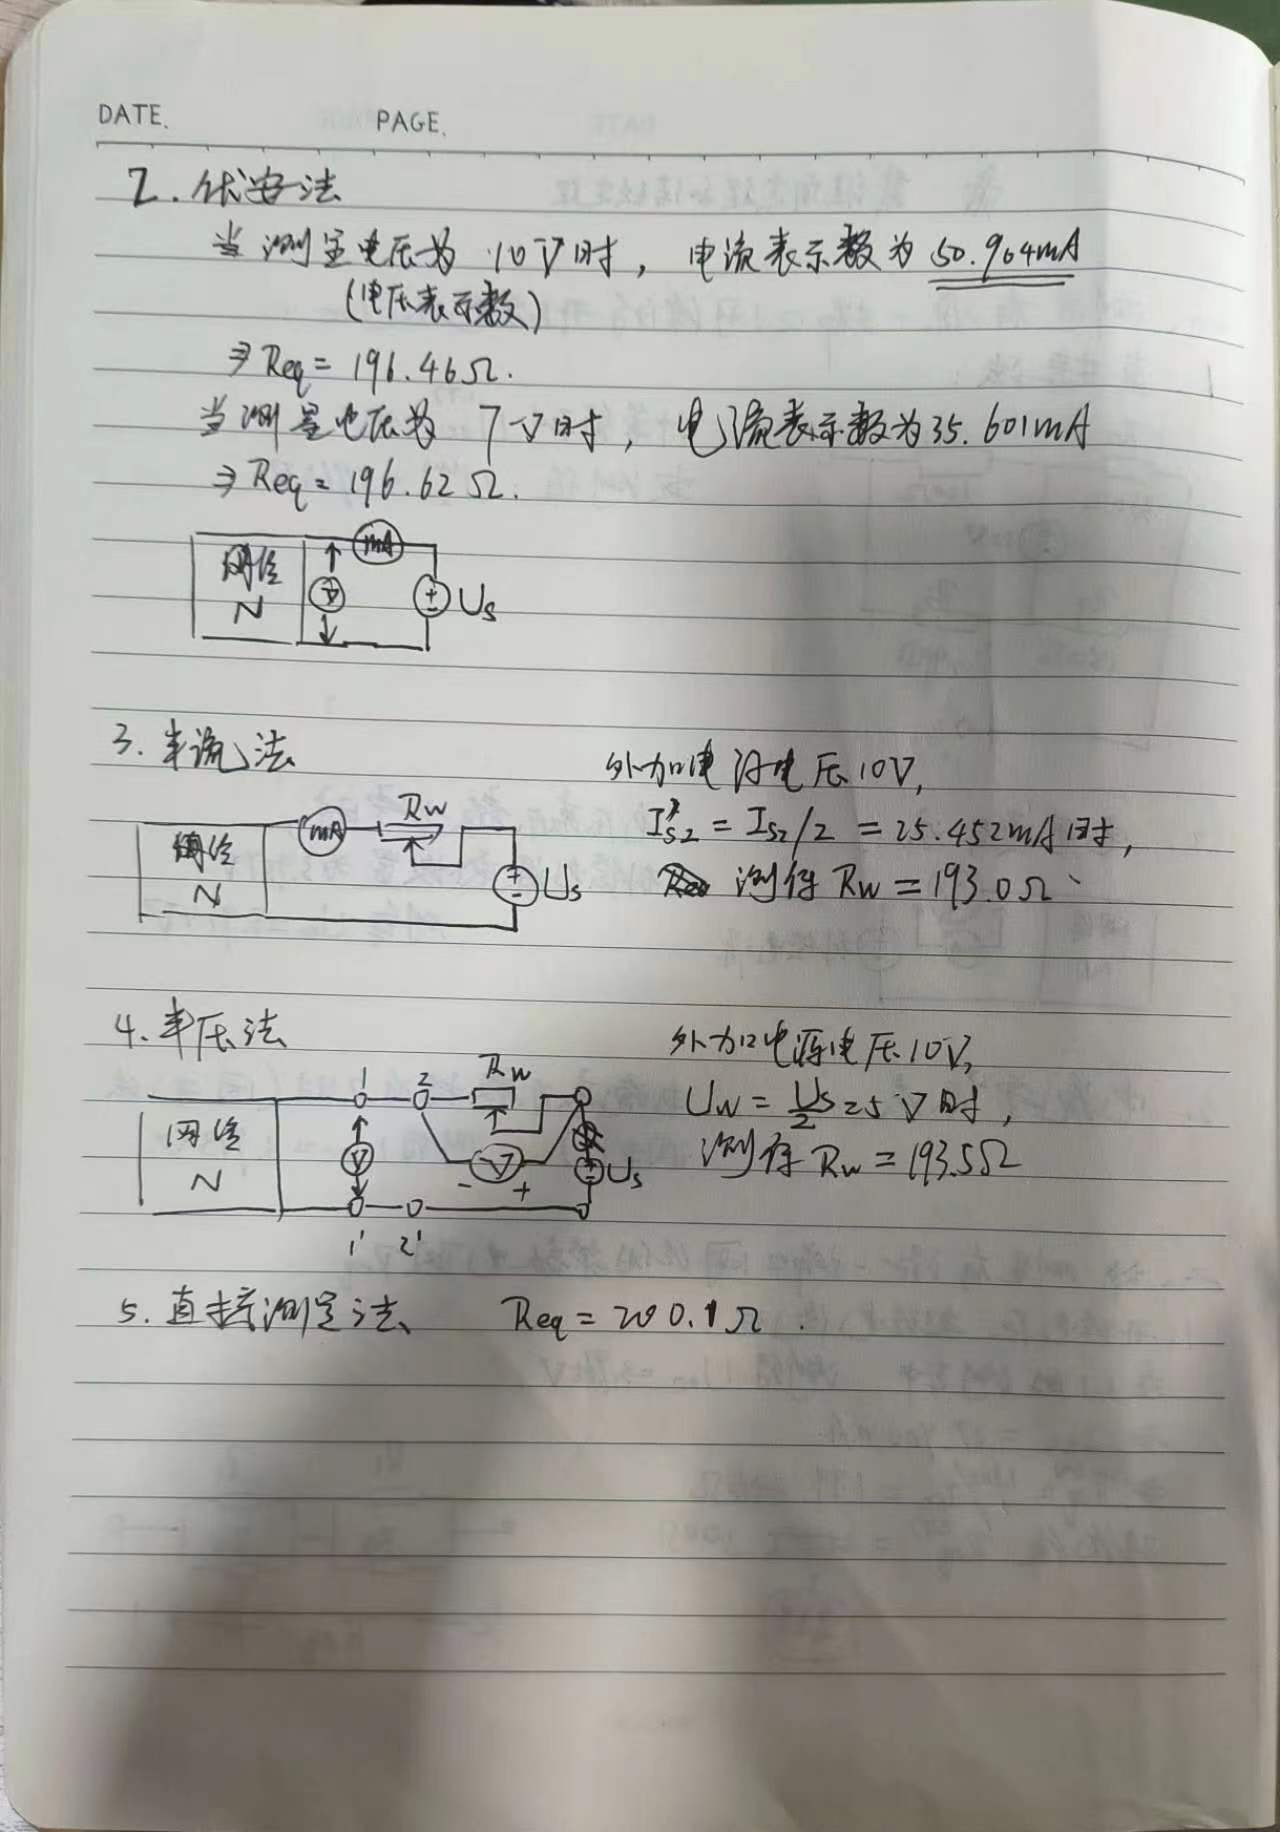 DATE. PAGE.
2. 伏安法
当测量电压为 10V时, 电流表示数为 50.904mA
(电压表示数)
⇒ Req = 196.46Ω.
当测量电压为 7V时, 电流表示数为35.601mA
⇒ Req = 196.62Ω.
网络 N mA V + - Us
3. 半流法
外加电源电压10V,
Is2' = Is2/2 = 25.452mA时,
测得 Rw = 193.0Ω
网络 N mA Rw + - Us
4. 半压法
外加电源电压10V,
Uw = Us/2 = 5V时,
测得 Rw = 193.5Ω
网络 N 1 2 Rw V V - + + - Us 1' 2'
5. 直接测定法 Req = 200.1Ω.